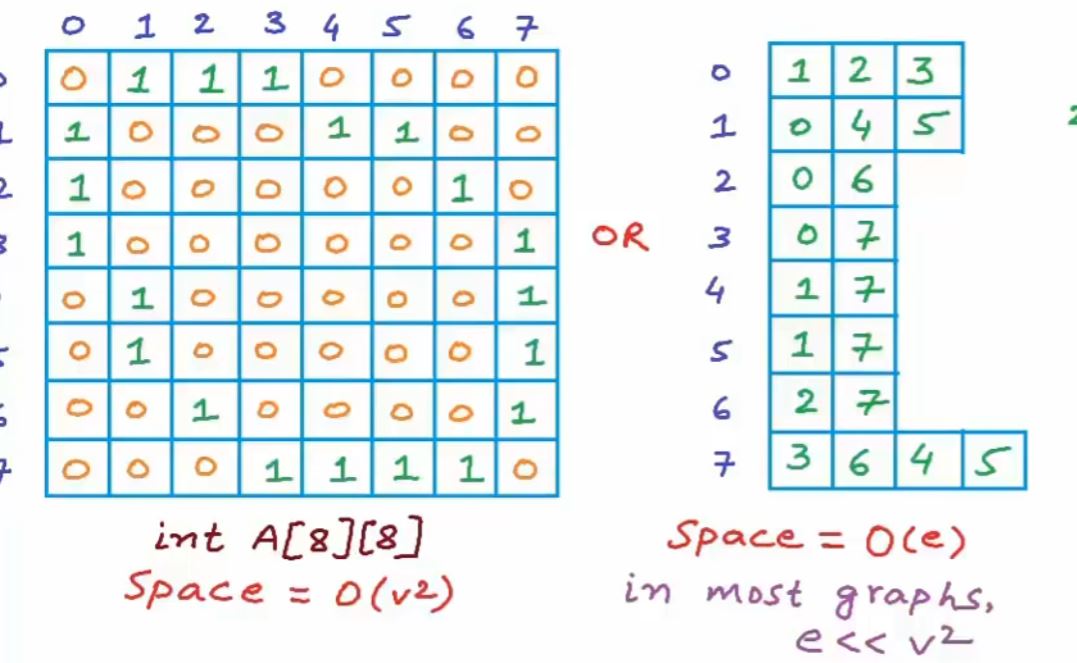 0 1 2 3 4 5 6 7
0 1 1 1 0 0 0 0
1 0 0 0 1 1 0 0
1 0 0 0 0 0 1 0
1 0 0 0 0 0 0 1
0 1 0 0 0 0 0 1
0 1 0 0 0 0 0 1
0 0 1 0 0 0 0 1
0 0 0 1 1 1 1 0
int A[8][8]
Space = O(v2)
OR
0 1 2 3
1 0 4 5
2 0 6
3 0 7
4 1 7
5 1 7
6 2 7
7 3 6 4 5
Space = O(e)
in most graphs,
e << v2